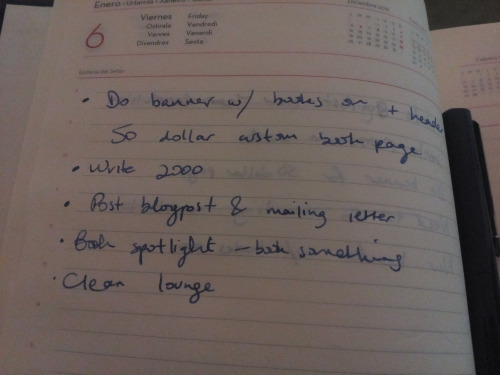 Enero
6
Viernes Friday
Ostirala Vendredi
Venres Venerdì
Divendres Sexta
• Do banner w/ books on + header
50 dollar custom book page
• Write 2000
• Post blogpost & mailing letter
• Book spotlight – book something
• Clean lounge